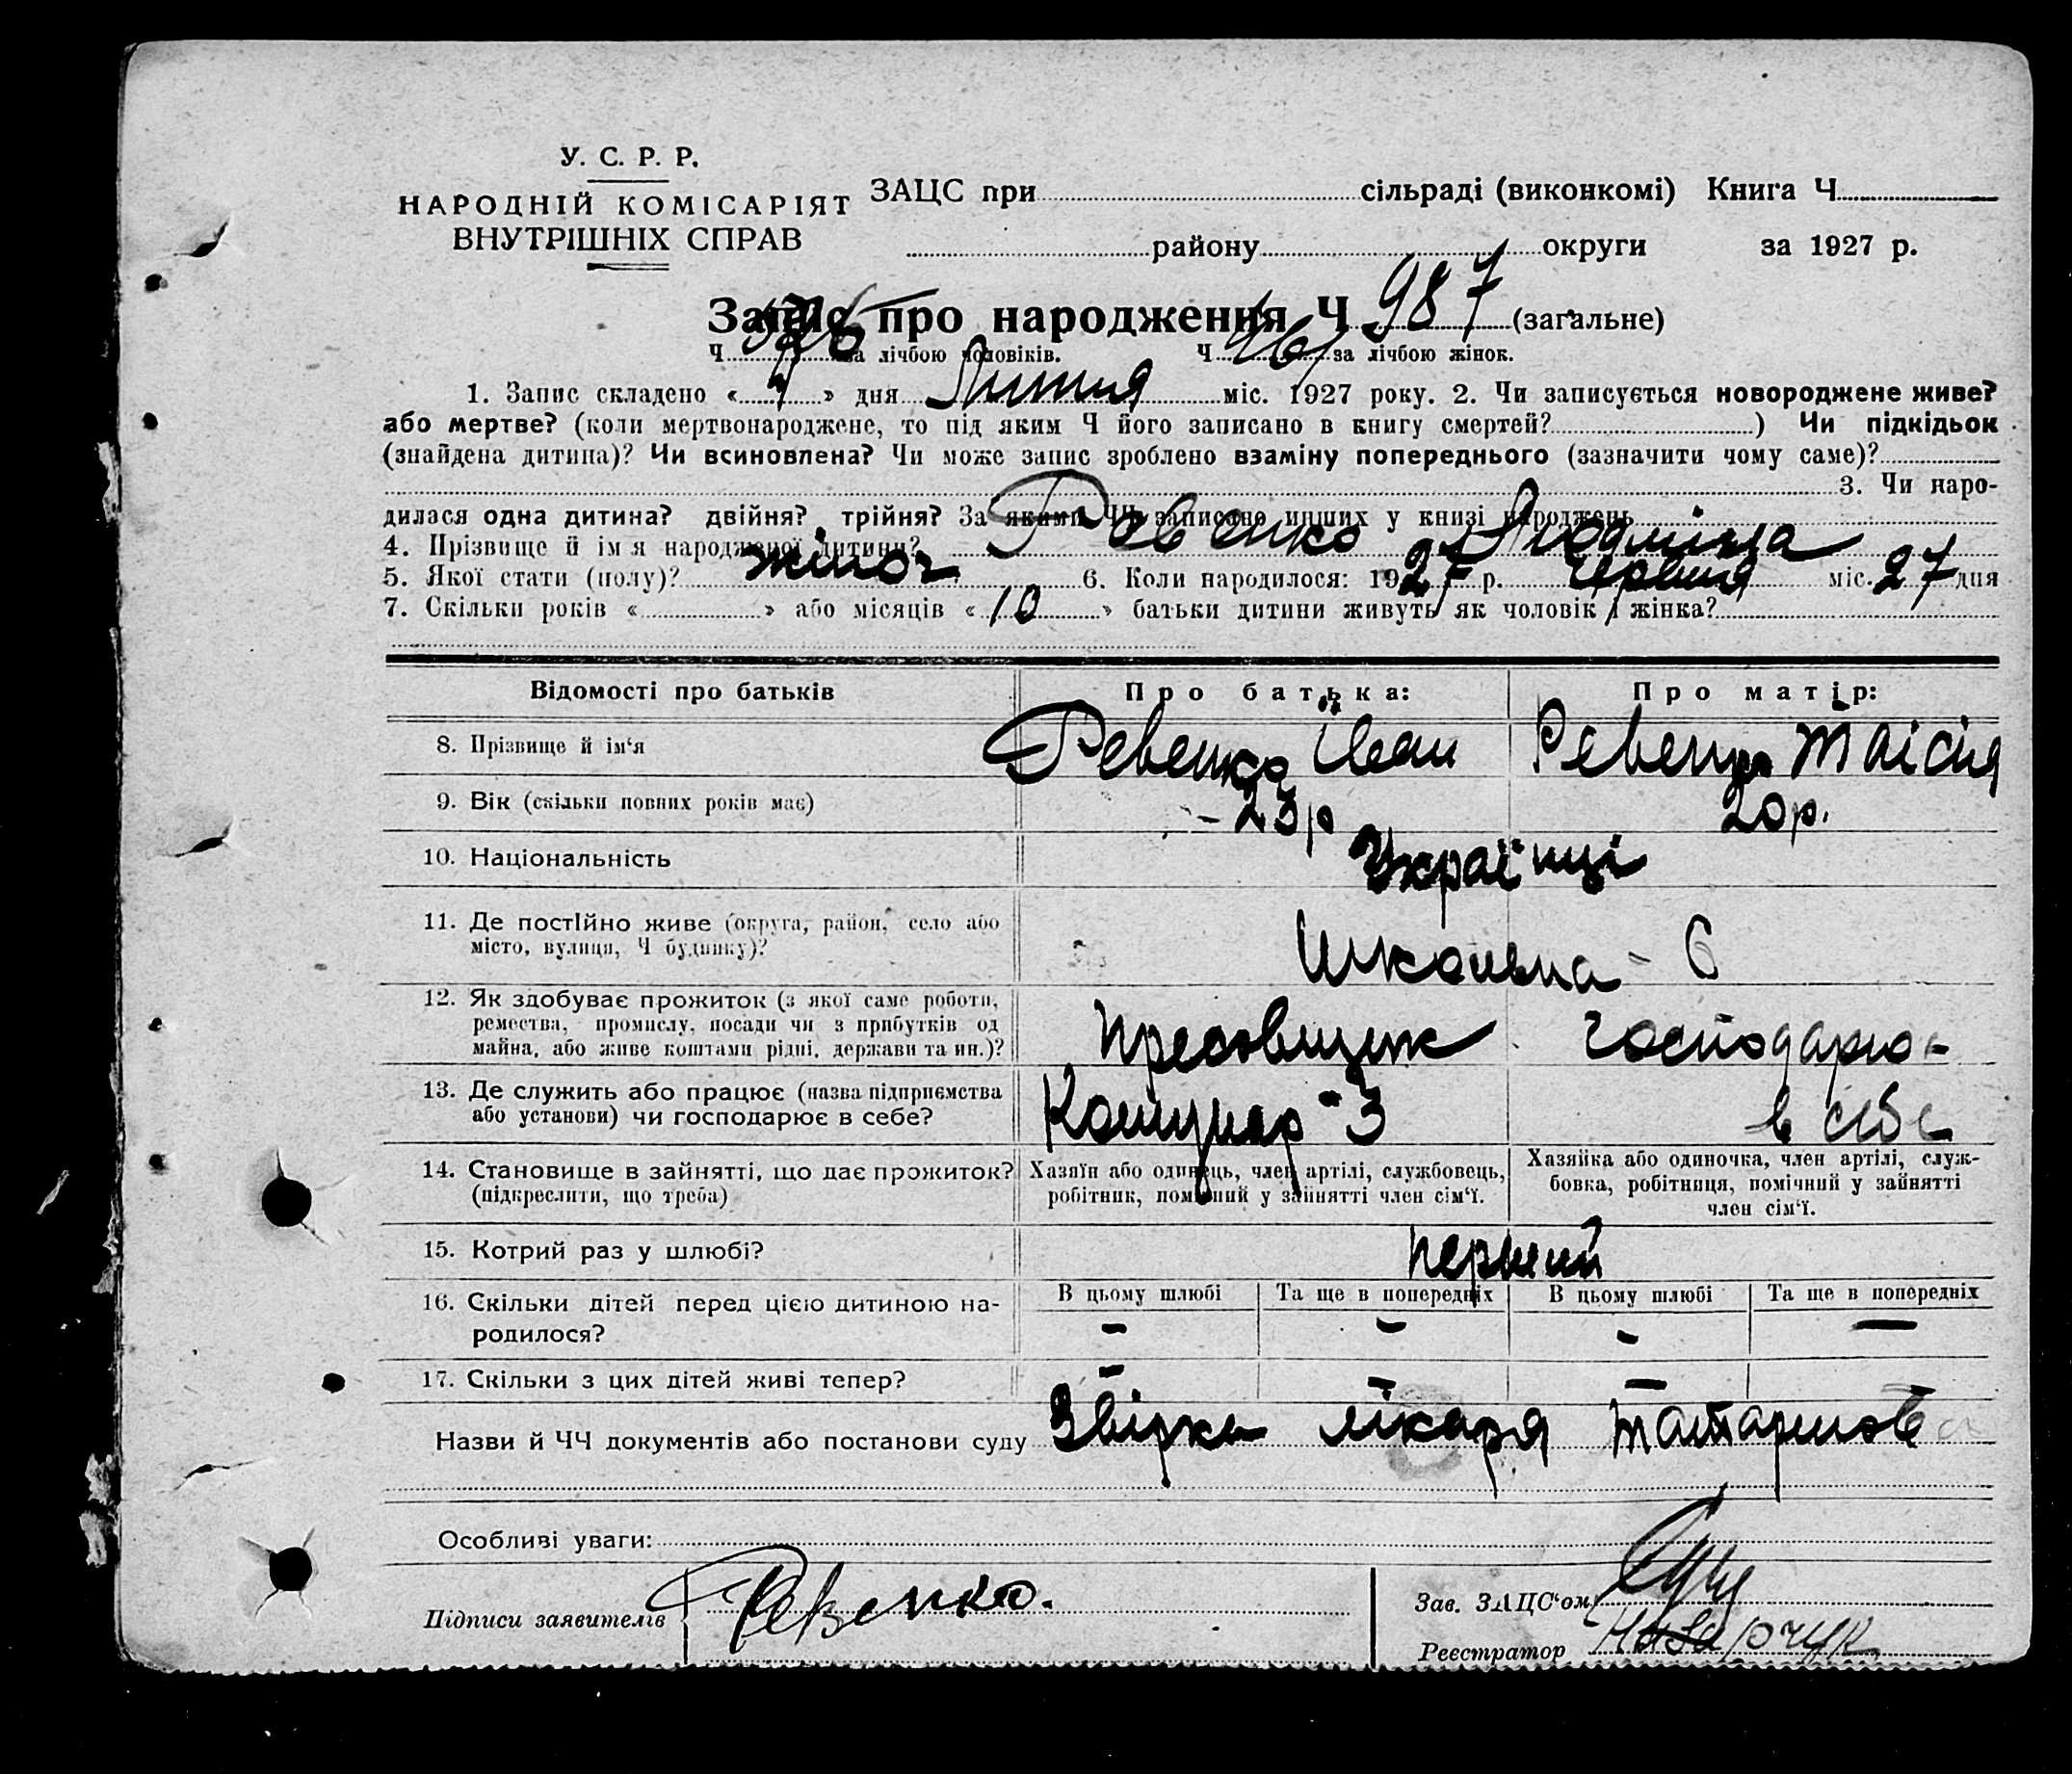 У. С. Р. Р.
НАРОДНІЙ КОМІСАРІЯТ
ВНУТРІШНІХ СПРАВ
ЗАЦС при сільраді (виконкомі) Книга Ч
району округи за 1927 р.
Запис про народження Ч 987 (загальне)
Ч за лічбою чоловіків. Ч 461 за лічбою жінок.
1. Запис складено « 7 » дня Липня міс. 1927 року. 2. Чи записується новороджене живе?
або мертве? (коли мертвонароджене, то під яким Ч його записано в книгу смертей? ) Чи підкідьок
(знайдена дитина)? Чи всиновлена? Чи може запис зроблено взаміну попереднього (зазначити чому саме)?
3. Чи наро-
дилася одна дитина? двійня? трійня? За якими ЧЧ записано инших у книзі народжень
4. Прізвище й ім я народженої дитини? Ревенко Людміла
5. Якої стати (полу)? жіноч 6. Коли народилося: 1927 р. червня міс. 27 дня
7. Скільки років « » або місяців « 10 » батьки дитини живуть як чоловік і жінка?
Відомості про батьків Про батька: Про матір:
8. Прізвище й ім‘я Ревенко Іван Ревенко Таісія
9. Вік (скільки повних років має) - 23 р 20 р.
10. Національність Українці
11. Де постійно живе (округа, район, село або
місто, вулиця, Ч будинку)? Школьна - 6
12. Як здобуває прожиток (з якої саме роботи,
ремества, промислу, посади чи з прибутків од
майна, або живе коштами рідні, держави та ин.)? Пресовщик господарює
13. Де служить або працює (назва підприємства
або установи) чи господарює в себе? Комунар - 3 в себе
14. Становище в зайнятті, що дає прожиток?
(підкреслити, що треба)
Хазяїн або одинець, член артілі, службовець,
робітник, помічний у зайнятті член сім‘ї.
Хазяйка або одиночка, член артілі, служ-
бовка, робітниця, помічний у зайнятті
член сім‘ї.
15. Котрий раз у шлюбі? первий
16. Скільки дітей перед цією дитиною на-
родилося?
В цьому шлюбі Та ще в попередніх В цьому шлюбі Та ще в попередніх
- - - -
17. Скільки з цих дітей живі тепер? - - -
Назви й ЧЧ документів або постанови суду лікаря
Особливі уваги:
Підписи заявителів Ревенко.
Зав. ЗАЦС‘ом
Реєстратор Назарчук